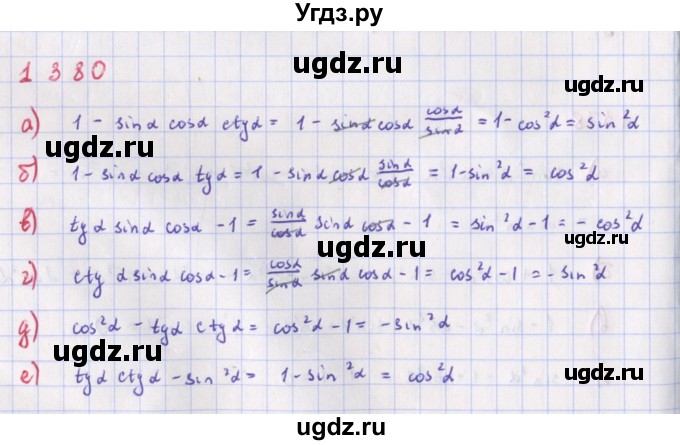 Угдз.ру
ugdz.ru
1380
ugdz.ru
а) 1 - sinα cosα ctgα = 1 - sinα cosα cosα/sinα = 1 - cos²α = sin²α
ugdz.ru
б) 1 - sinα cosα tgα = 1 - sinα cosα sinα/cosα = 1 - sin²α = cos²α
ugdz.ru
в) tgα sinα cosα - 1 = sinα/cosα sinα cosα - 1 = sin²α - 1 = - cos²α
ugdz.ru
г) ctg α sinα cosα - 1 = cosα/sinα sinα cosα - 1 = cos²α - 1 = - sin²α
ugdz.ru
д) cos²α - tgα ctgα = cos²α - 1 = - sin²α
ugdz.ru
е) tgα ctgα - sin²α = 1 - sin²α = cos²α
ugdz.ru
Угдз.ру